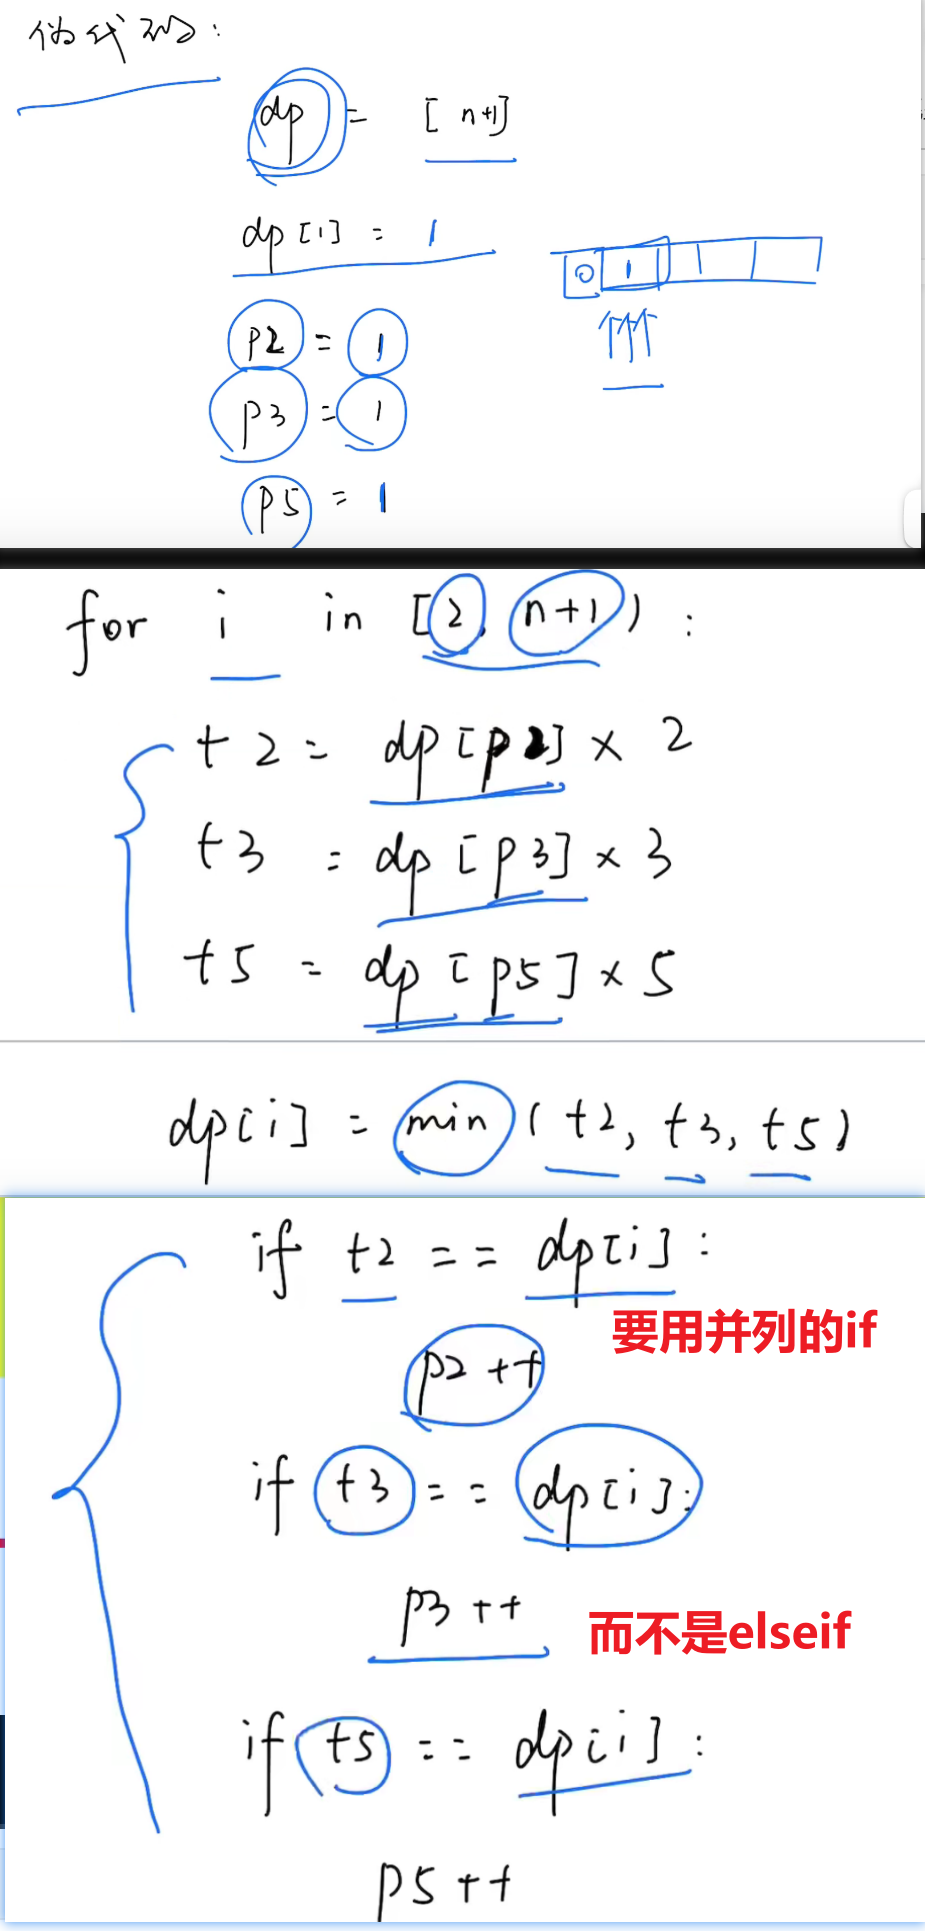 伪代码:
dp = [n+1]
dp[1] = 1
0 1
p2 = 1
p3 = 1
p5 = 1
for i in [2, n+1):
t2 = dp[p2] × 2
t3 = dp[p3] × 3
t5 = dp[p5] × 5
dp[i] = min(t2, t3, t5)
if t2 == dp[i]:
要用并列的if
p2 ++
if t3 == dp[i]:
p3 ++
而不是elseif
if t5 == dp[i]:
p5 ++